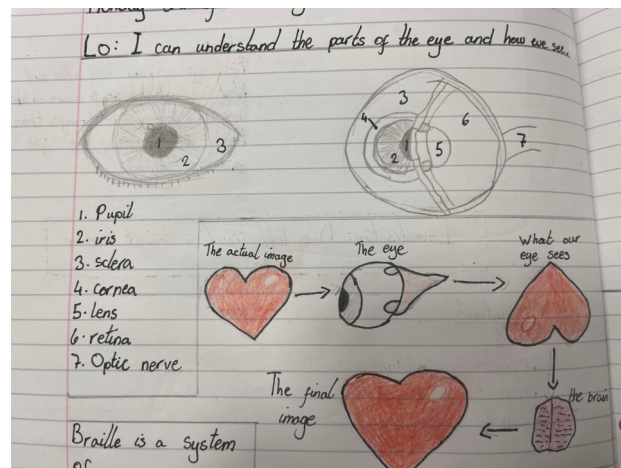 Lo: I can understand the parts of the eye and how we see.
1
2
3
3
4
1
2
5
6
7
1. Pupil
2. iris
3. sclera
4. cornea
5. lens
6. retina
7. Optic nerve
The actual image
The eye
What our
eye sees
the brain
The final
image
Braille is a system
of